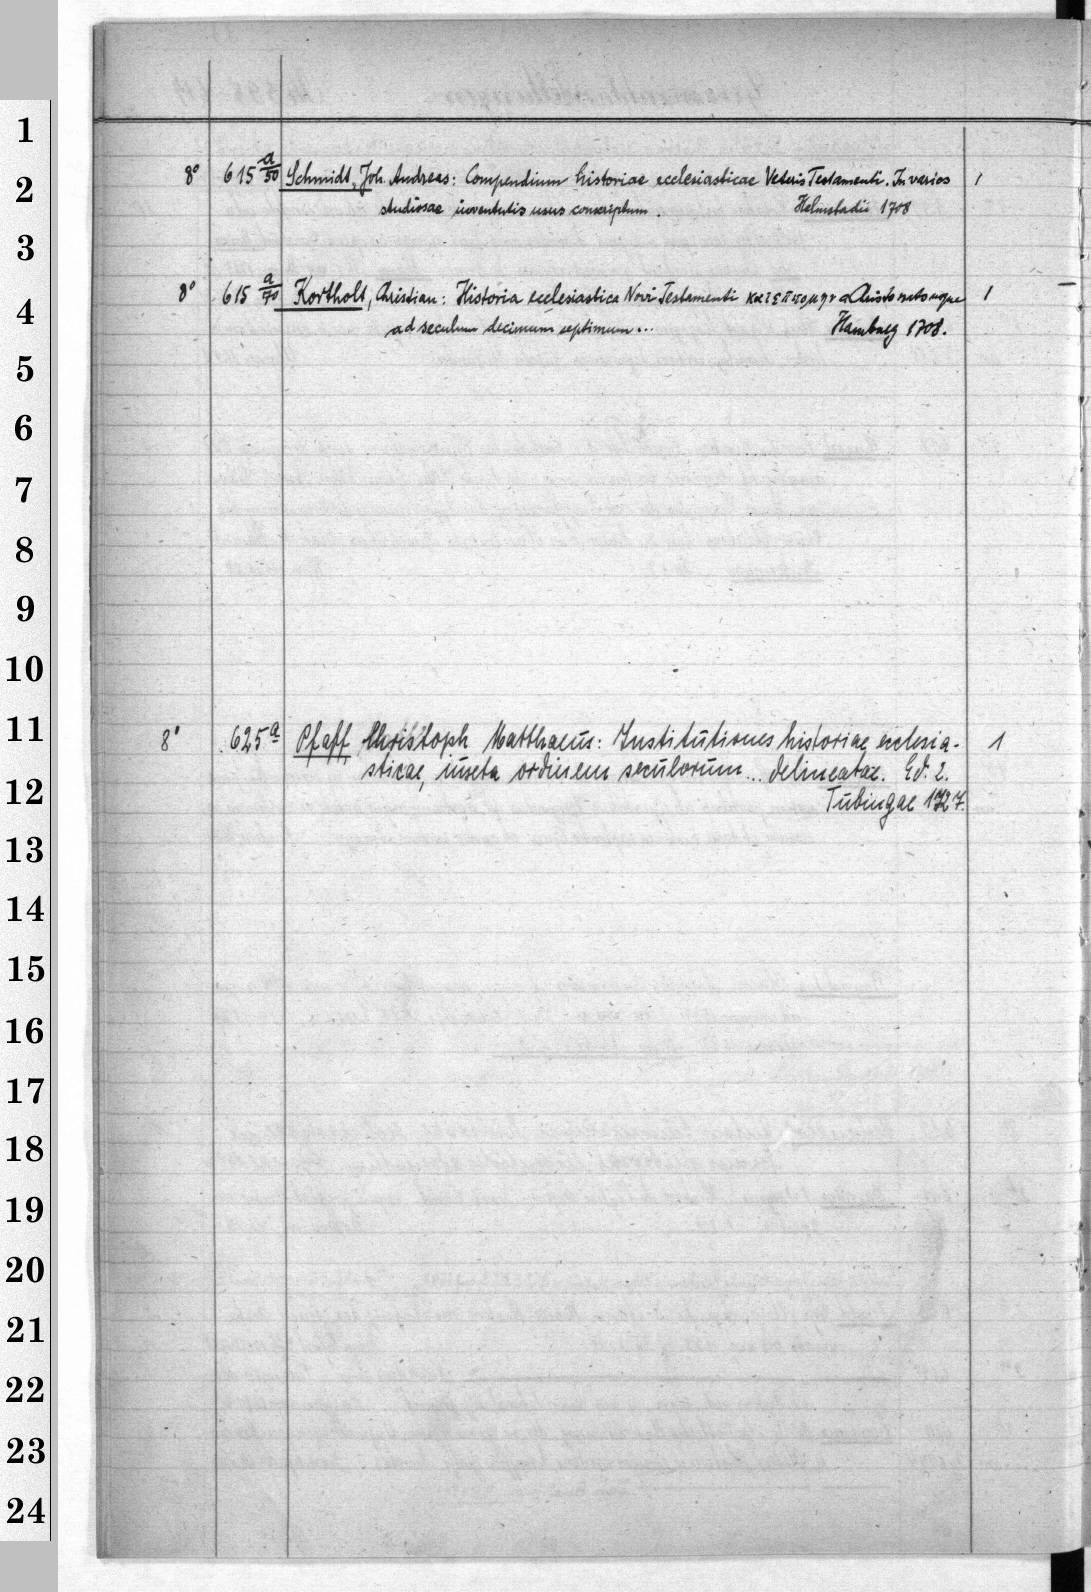 1
2
3
4
5
6
7
8
9
10
11
12
13
14
15
16
17
18
19
20
21
22
23
24
8° 615 a/50 Schmidt, Joh. Andreas: Compendium historiae ecclesiasticae Veteris Testamenti. In varios 1
studiosae iuventutis usus conscriptum. Helmstadii 1708
8° 615 a/70 Kortholt, Christian: Historia ecclesiastica Novi Testamenti a Christo nato usque 1
ad seculum decimum septimum... Hamburg 1708.
8° 625a Pfaff, Christoph Matthaeus: Institutiones historiae ecclesia- 1
sticae, iuxta ordinem seculorum... delineatae. Ed. 2.
Tubingae 1727.